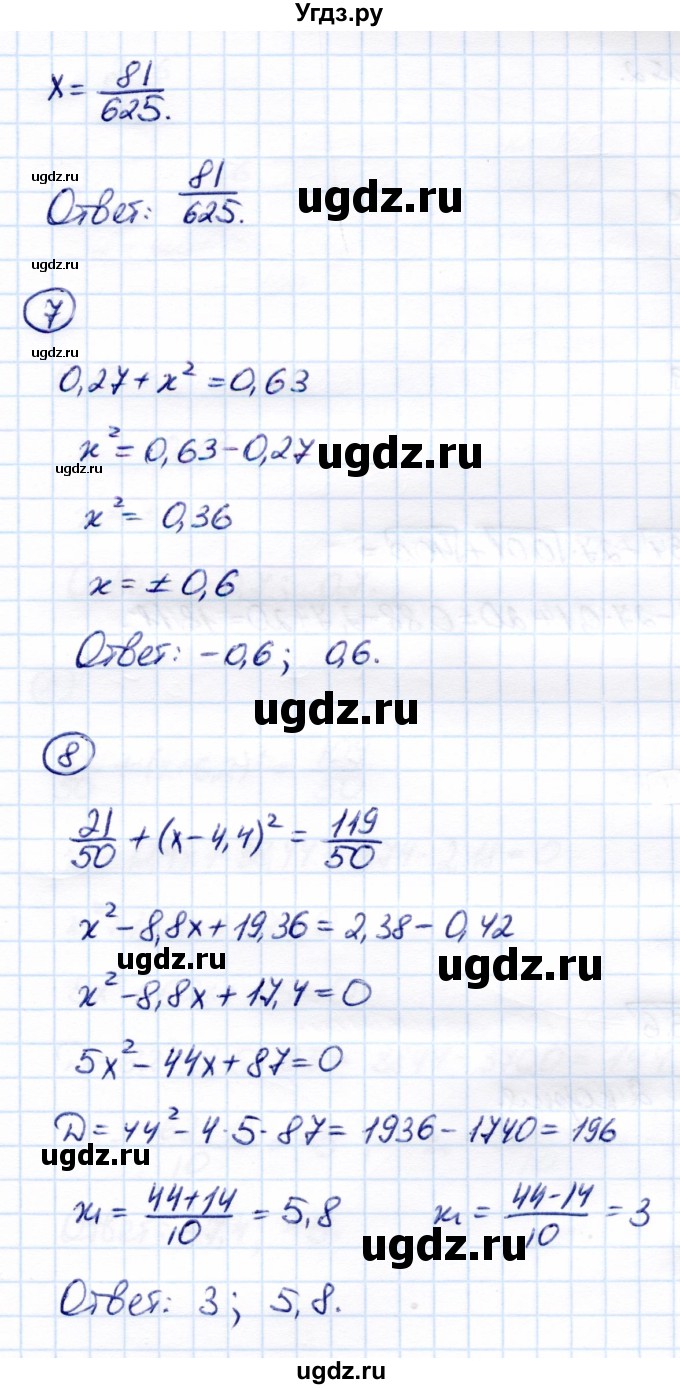 Угдз.ру
x = 81/625.
ugdz.ru
Ответ: 81/625.
ugdz.ru
ugdz.ru
7
ugdz.ru
0,27 + x² = 0,63
x² = 0,63 - 0,27
ugdz.ru
ugdz.ru
x² = 0,36
x = ± 0,6
Ответ: -0,6; 0,6.
ugdz.ru
8
21/50 + (x - 4,4)² = 119/50
x² - 8,8x + 19,36 = 2,38 - 0,42
ugdz.ru
ugdz.ru
x² - 8,8x + 17,4 = 0
5x² - 44x + 87 = 0
D = 44² - 4·5·87 = 1936 - 1740 = 196
ugdz.ru
x₁ = 44+14/10 = 5,8 x₂ = 44-14/10 = 3
ugdz.ru
Ответ: 3; 5,8.
ugdz.ru